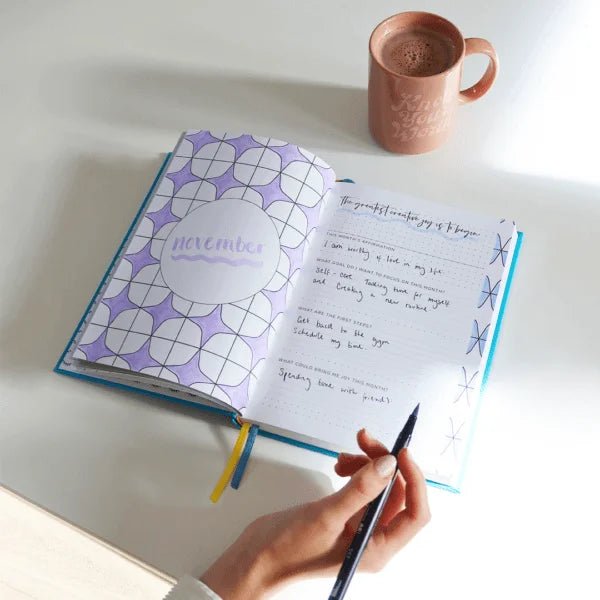 Know
Your
Worth
november
The greatest creative joy is to begin
THIS MONTH'S AFFIRMATION
I am worthy of love in my life.
WHAT GOAL DO I WANT TO FOCUS ON THIS MONTH?
Self-care Taking time for myself
and Creating a new routine
WHAT ARE THE FIRST STEPS?
Get back to the gym
Schedule my time.
WHAT COULD BRING ME JOY THIS MONTH?
Spending time with friends.